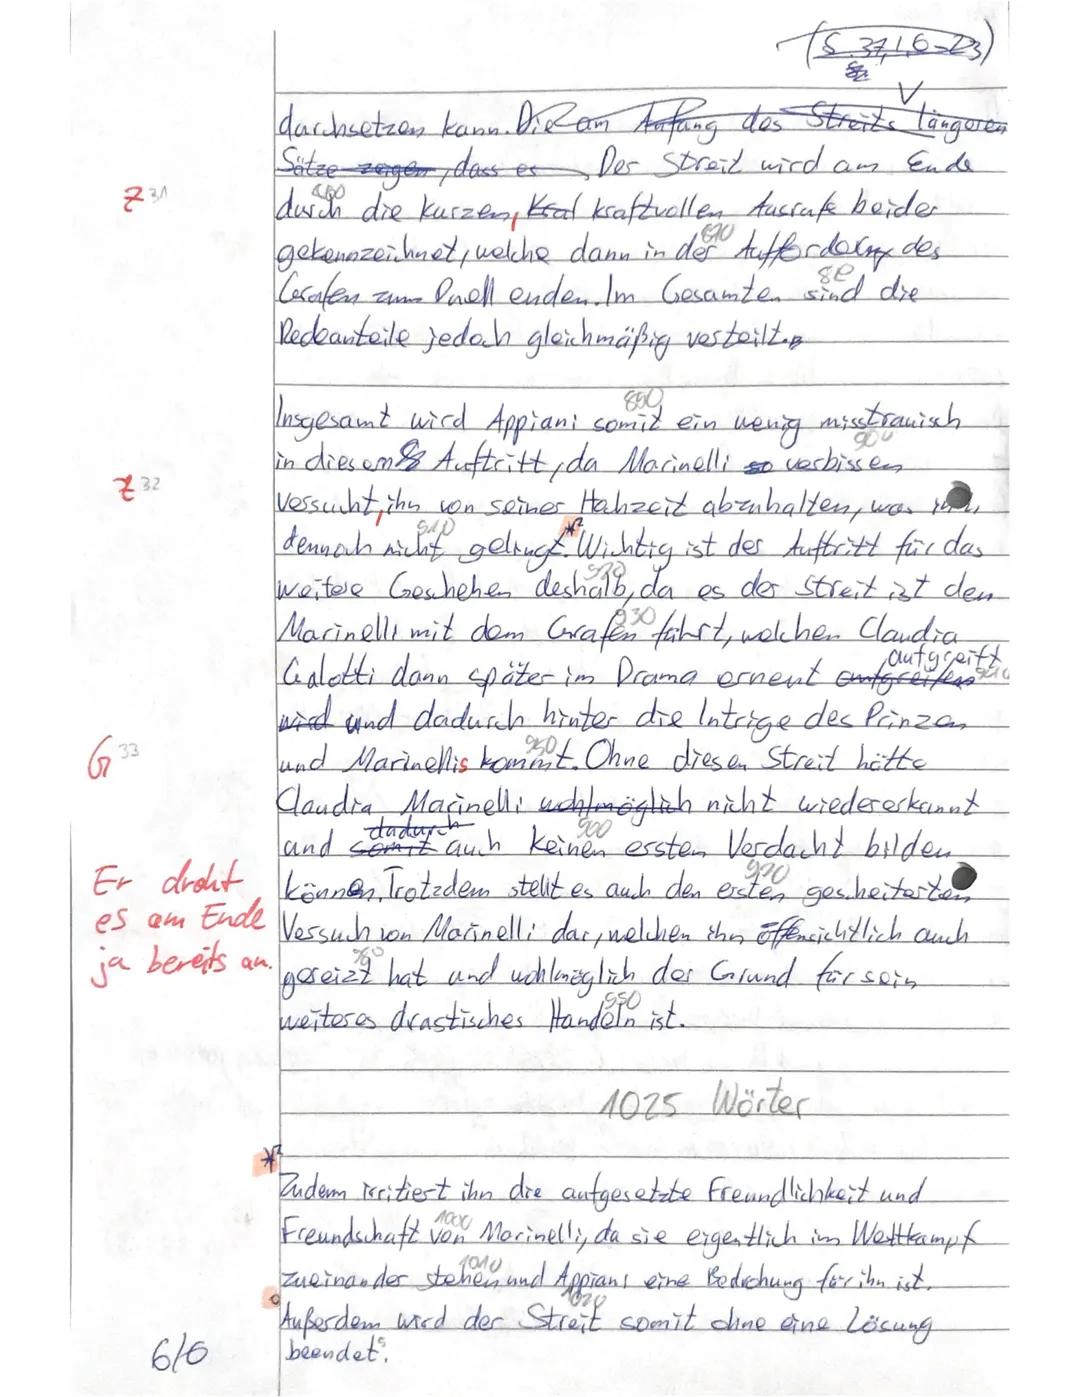 (S. 37, l. 6-23)
durchsetzen kann. Die am Anfang des Streits längeren
Sätze zeigen, dass es Der Streit wird am Ende
Z 31
860
durch die kurzen, kraftvollen Ausrufe beider
870
gekennzeichnet, welche dann in der Aufforderung des
Grafen zum Duell enden. Im Gesamten sind die
Redeanteile jedoch gleichmäßig verteilt.
890
Insgesamt wird Appiani somit ein wenig misstrauisch
900
in diesem Auftritt, da Marinelli so verbissen
Z 32
versucht, ihn von seiner Hochzeit abzuhalten, was
910
dennoch nicht gelingt. *2 Wichtig ist der Auftritt für das
920
weitere Geschehen deshalb, da es der Streit ist den
930
Marinelli mit dem Grafen führt, welchen Claudia
aufgreift 940
Galotti dann später im Drama erneut aufgreifen
wird und dadurch hinter die Intrige des Prinzen
G 33
950
und Marinellis kommt. Ohne diesen Streit hätte
Claudia Marinelli wohlmöglich nicht wiedererkannt
dadurch
und somit auch keinen ersten Verdacht bilden
970
Er droht
können. Trotzdem stellt es auch den ersten gescheiterten
es am Ende
Versuch von Marinelli dar, welchen ihn offensichtlich auch
ja bereits an.
gereizt hat und wohlmöglich der Grund für sein
weiteres drastisches Handeln ist.
1025 Wörter
*2
Zudem irritiert ihn die aufgesetzte Freundlichkeit und
1000
Freundschaft von Marinelli, da sie eigentlich im Wettkampf
1010
zueinander stehen und Appiani eine Bedrohung für ihn ist.
1020
Außerdem wird der Streit somit ohne eine Lösung
beendet.
6/6